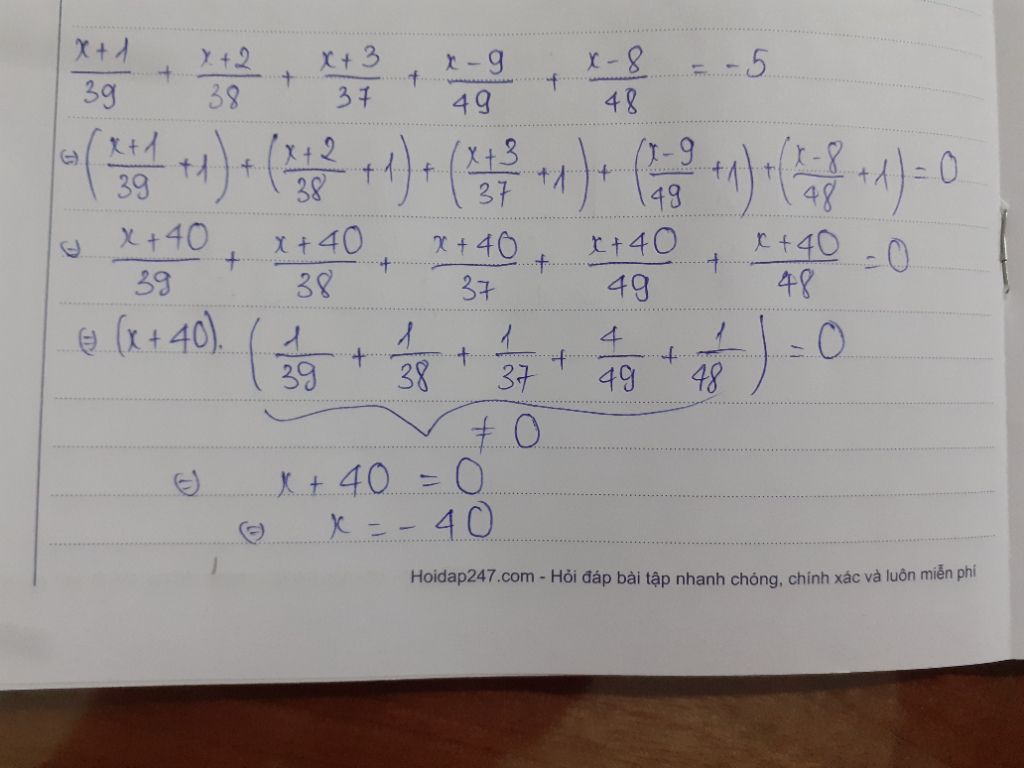 x+1/39 + x+2/38 + x+3/37 + x-9/49 + x-8/48 = -5
⇔ (x+1/39 +1) + (x+2/38 +1) + (x+3/37 +1) + (x-9/49 +1) + (x-8/48 +1) = 0
⇔ x+40/39 + x+40/38 + x+40/37 + x+40/49 + x+40/48 = 0
⇔ (x+40). (1/39 + 1/38 + 1/37 + 1/49 + 1/48) = 0
≠ 0
⇔ x + 40 = 0
⇔ x = - 40
Hoidap247.com - Hỏi đáp bài tập nhanh chóng, chính xác và luôn miễn phí